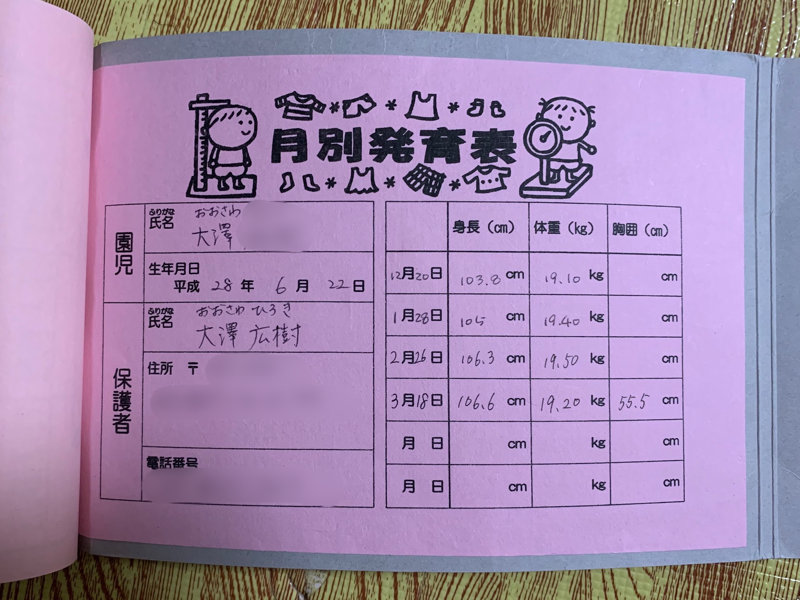 月別発育表
園児
ふりがな おおさわ
氏名 大澤
生年月日
平成 28 年 6 月 22 日
保護者
ふりがな おおさわ ひろき
氏名 大澤 広樹
住所 〒
電話番号
身長(cm) 体重(kg) 胸囲(cm)
12月20日 103.8 cm 19.10 kg cm
1月28日 105 cm 19.40 kg cm
2月26日 106.3 cm 19.50 kg cm
3月18日 106.6 cm 19.20 kg 55.5 cm
月 日 cm kg cm
月 日 cm kg cm